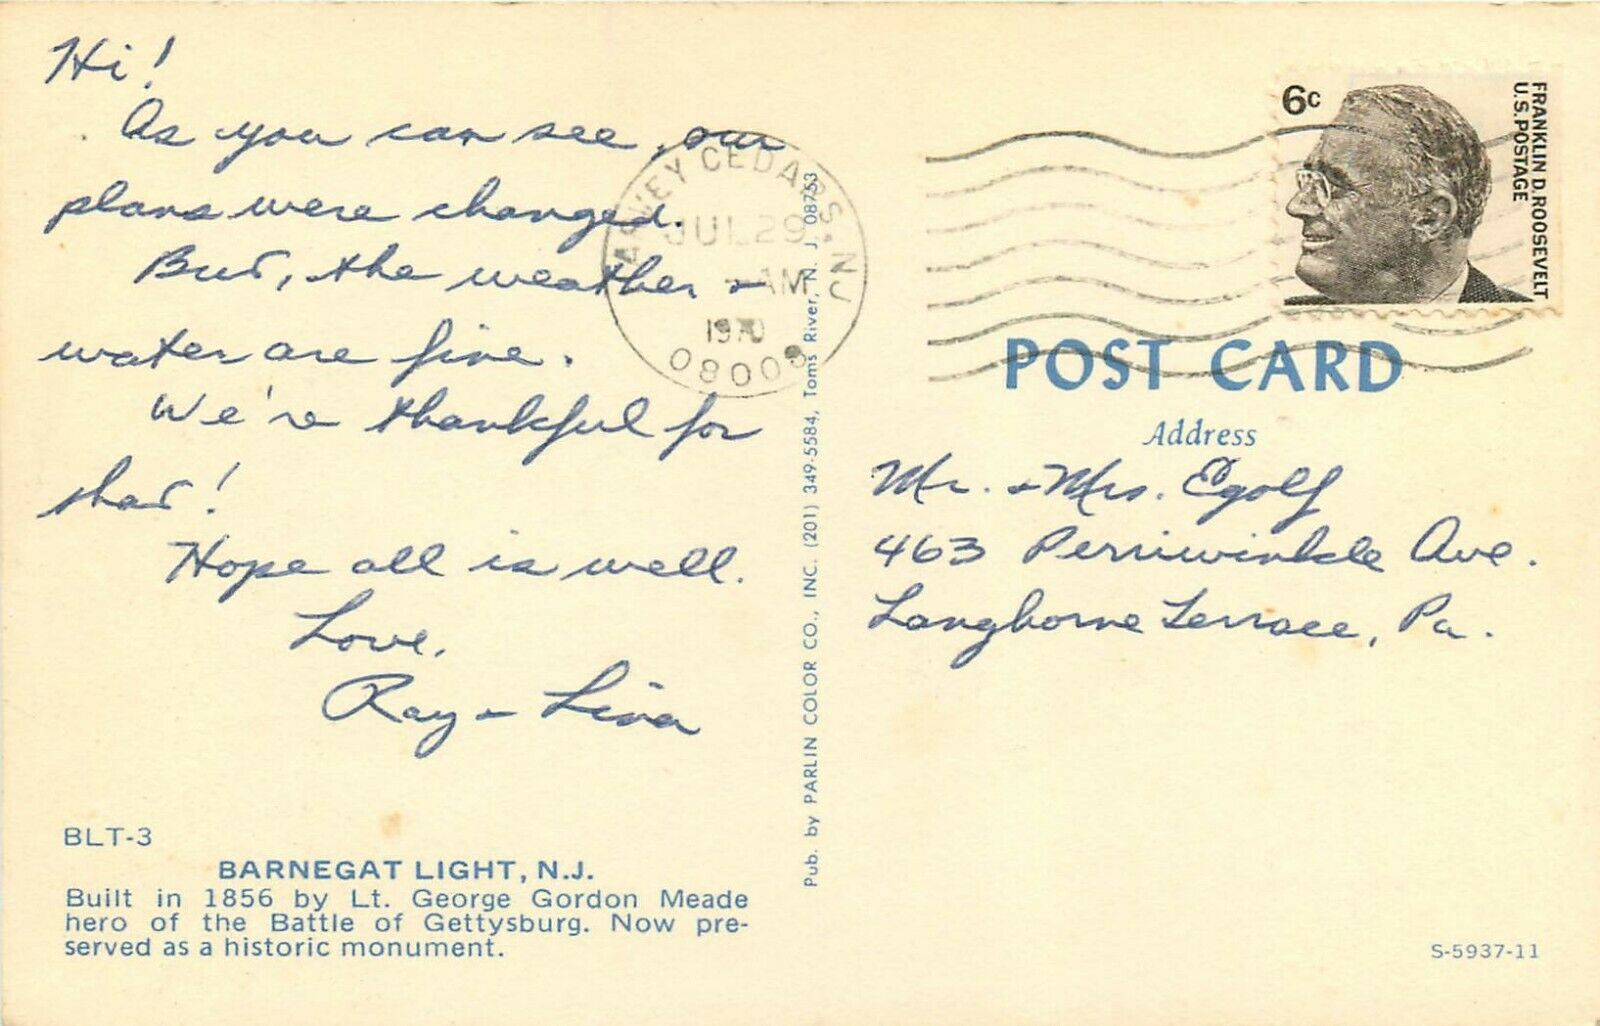 Hi!
As you can see, our
plans were changed.
But, the weather +
water are fine.
We're thankful for
that!
Hope all is well.
Love,
Ray + Lina
BLT-3
BARNEGAT LIGHT, N.J.
Built in 1856 by Lt. George Gordon Meade
hero of the Battle of Gettysburg. Now pre-
served as a historic monument.
Pub. by PARLIN COLOR CO., INC. (201) 349-5584, Toms River, N. J. 08753
HARVEY CEDARS, NJ
JUL 29
AM
1970
08008
6c
FRANKLIN D. ROOSEVELT
U.S. POSTAGE
POST CARD
Address
Mr. + Mrs. Egolf
463 Perriwinkle Ave.
Langhorne Terrace, Pa.
S-5937-11